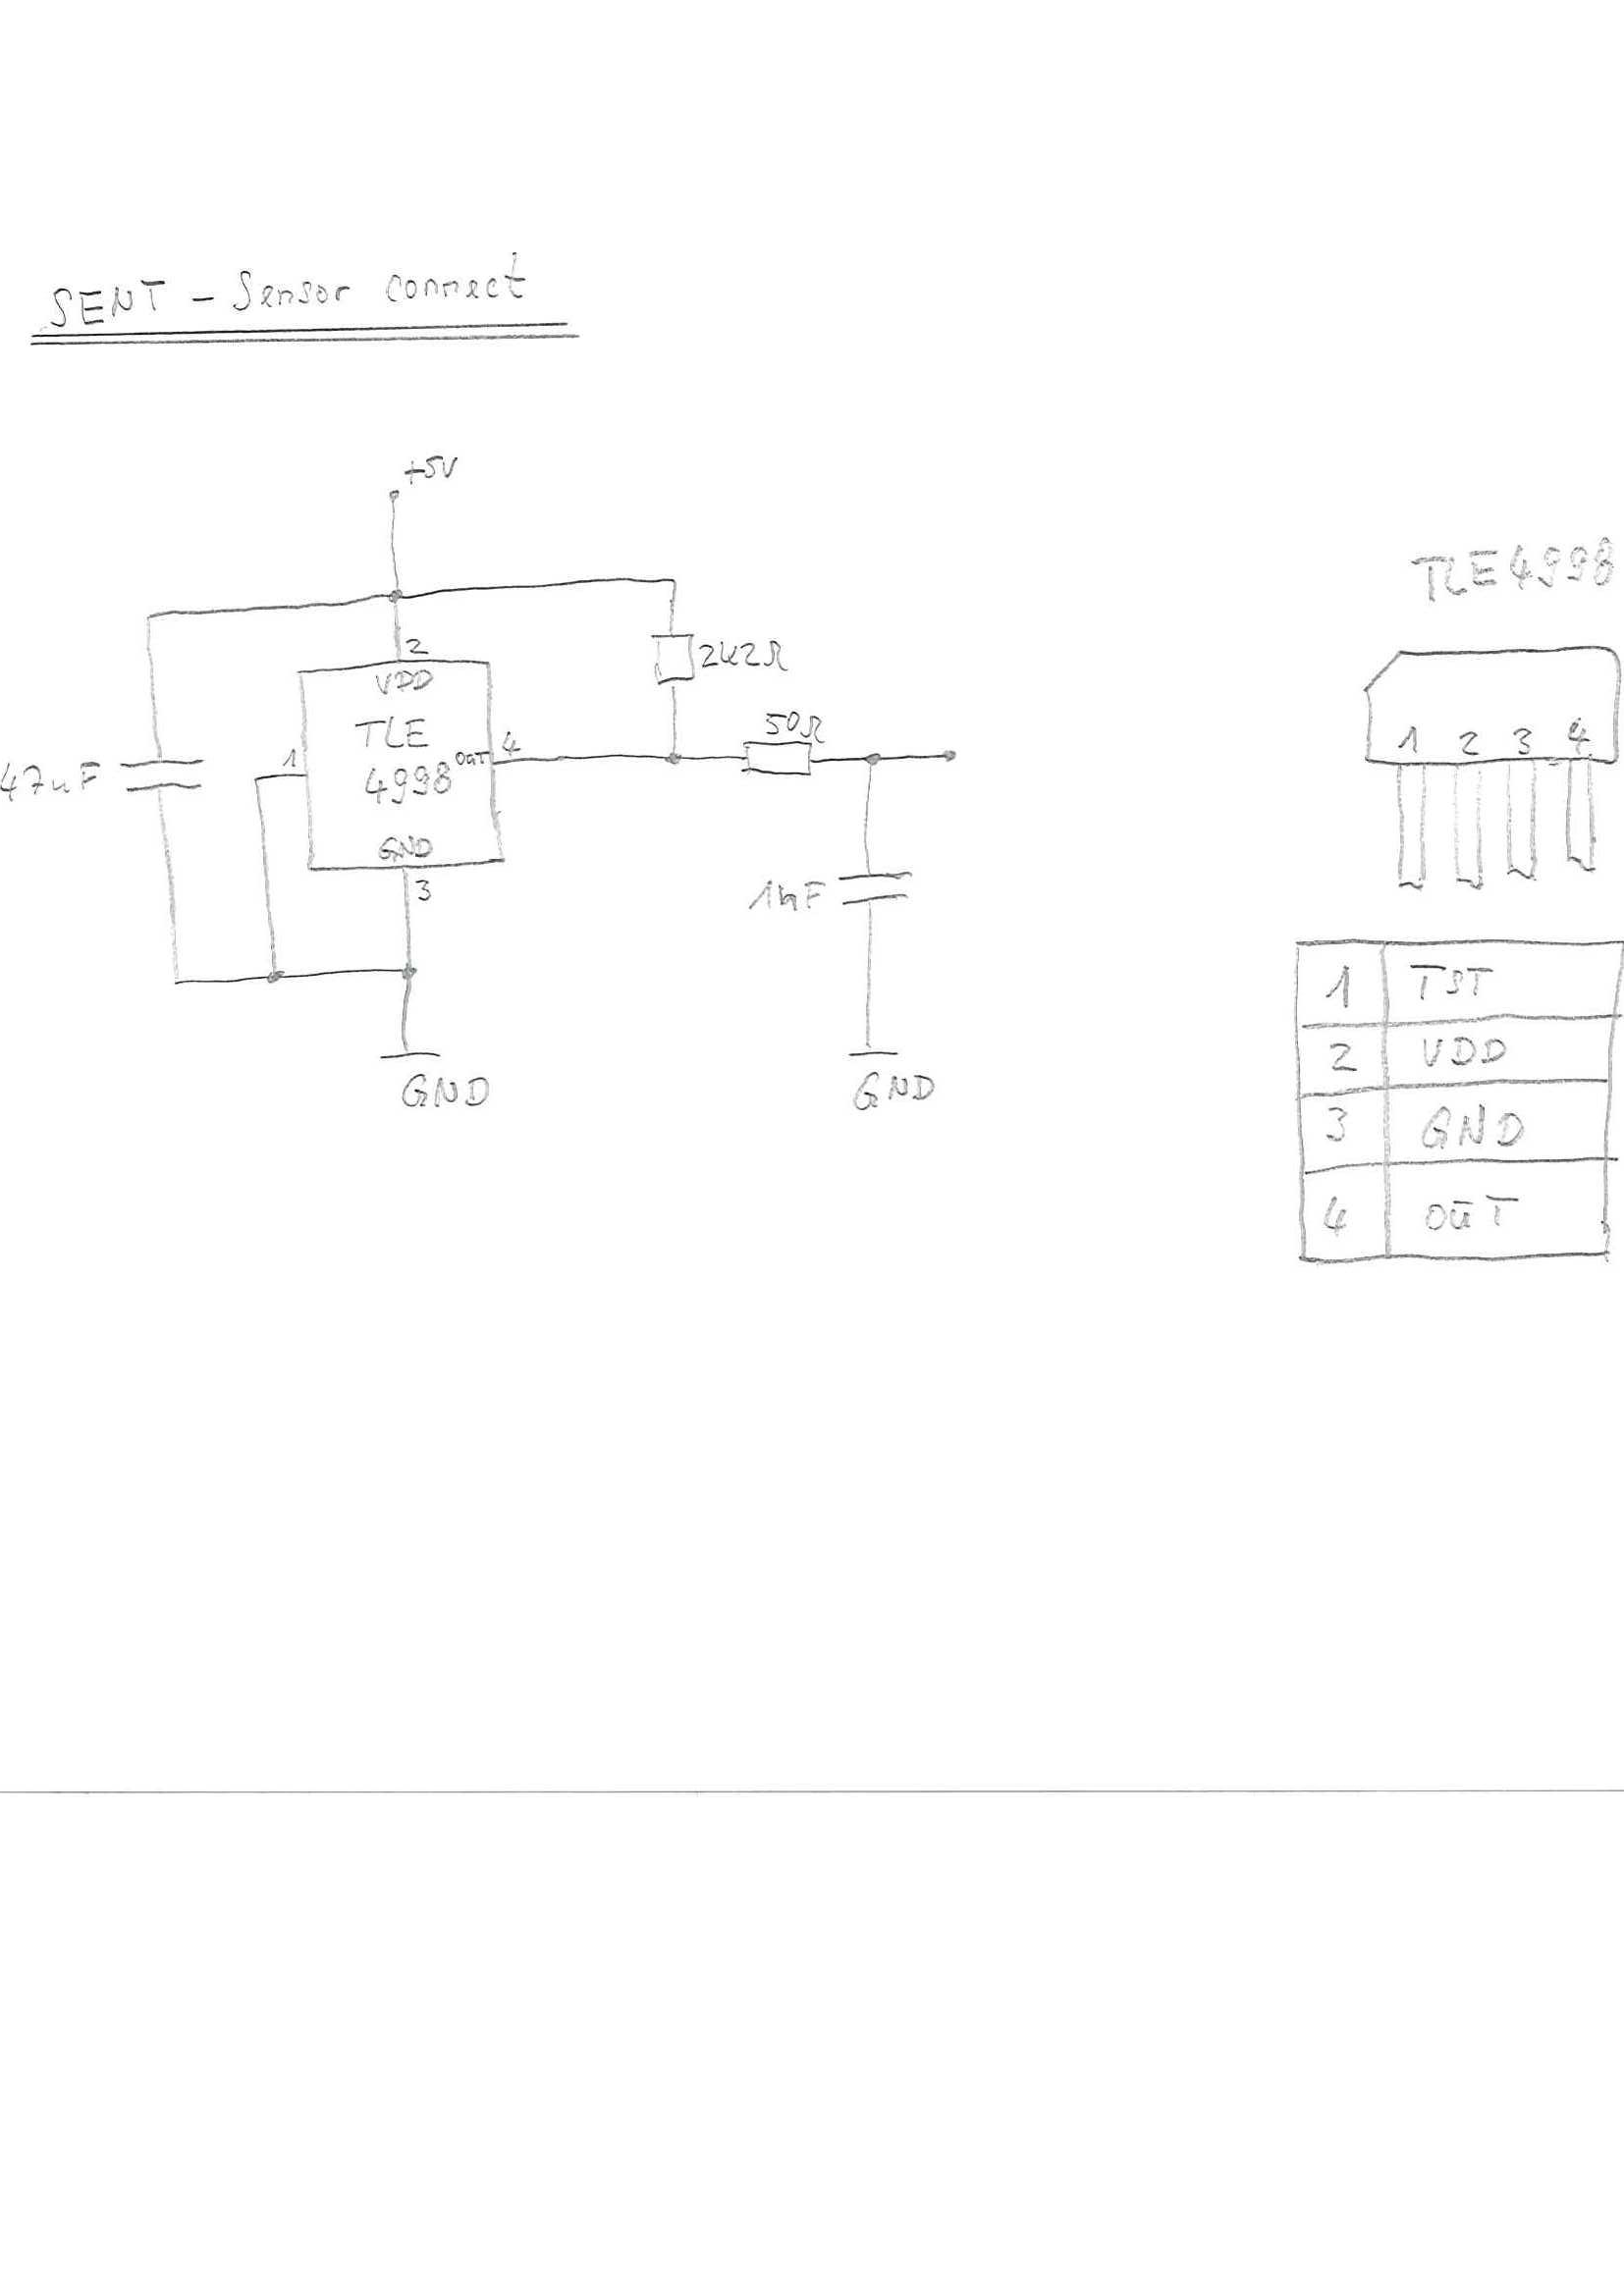 SENT - Sensor connect
+5V
2
VDD
2k2Ω
TLE
4998
OUT
4
1
50Ω
47nF
GND
3
1nF
GND
GND
TLE4998
1 2 3 4
1 TST
2 VDD
3 GND
4 OUT